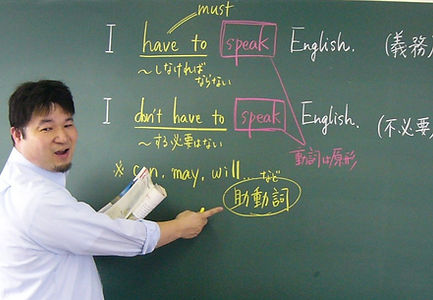 must
I have to speak English. (義務)
～しなければ
ならない
I don't have to speak English. (不必要)
～する必要はない
動詞は原形
※ can, may, will... など
助動詞